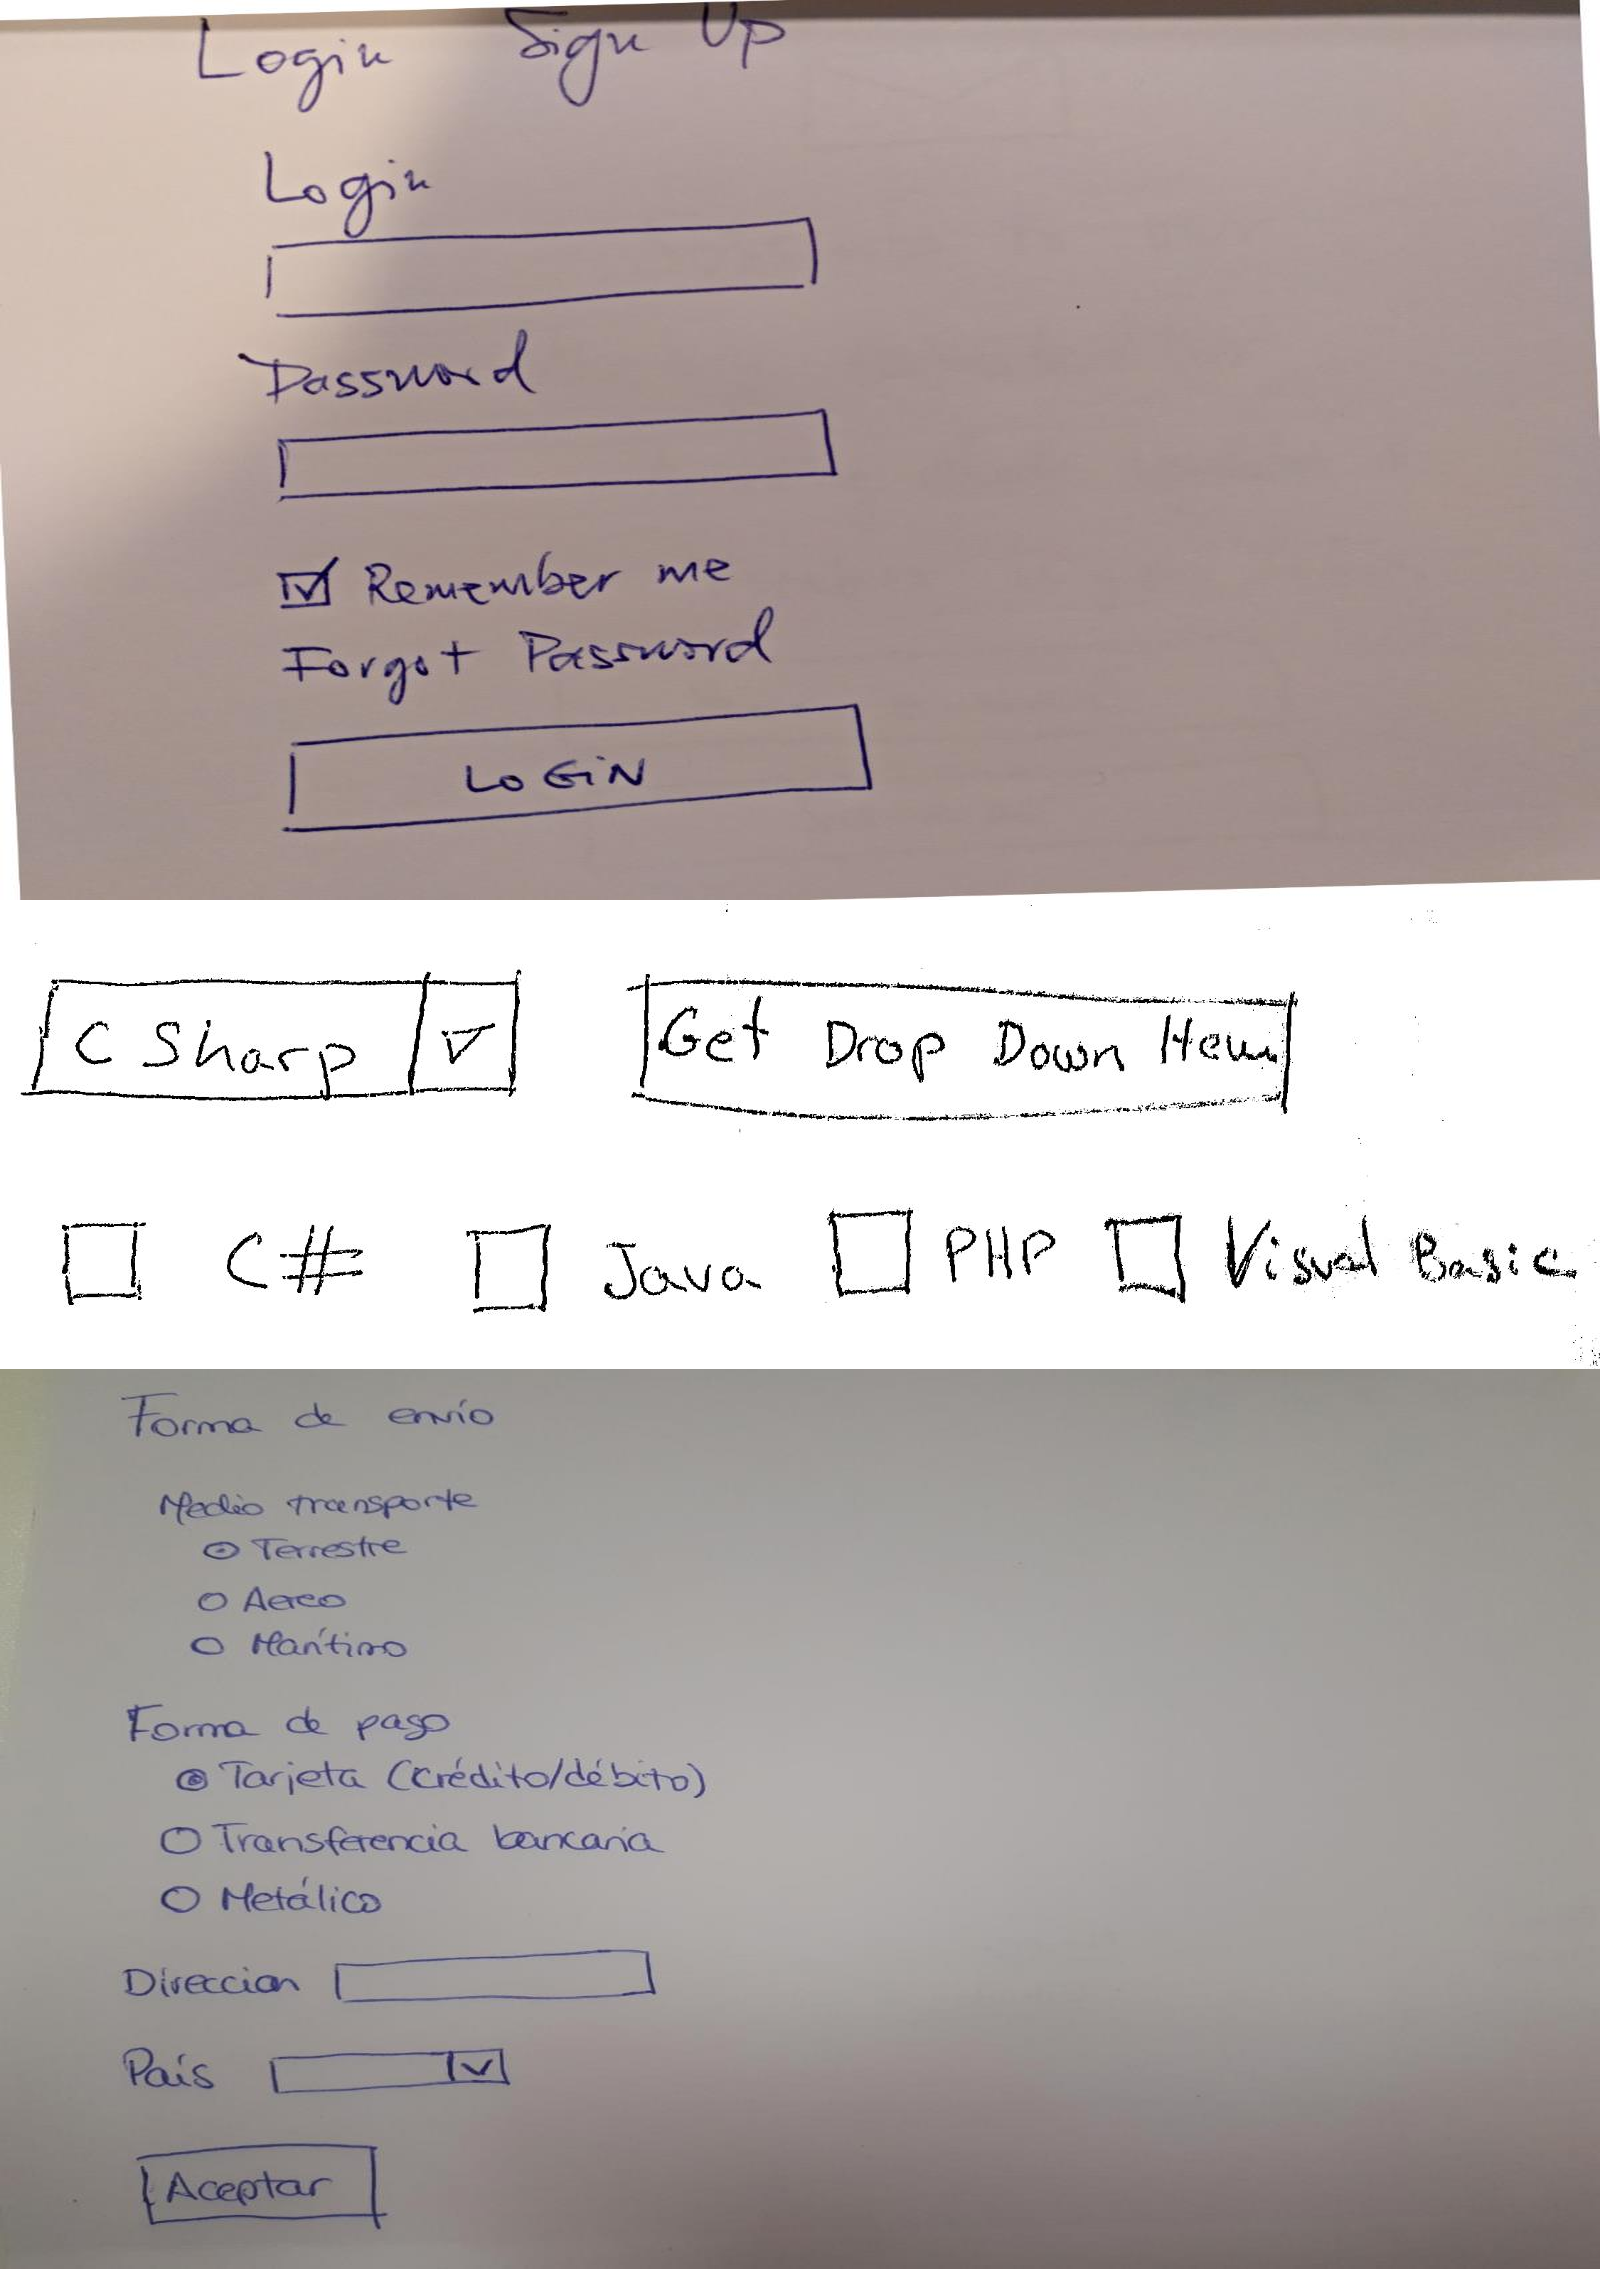 Login Sign Up
Login
Password
Remember me
Forgot Password
LOGIN
C Sharp
Get Drop Down Item
C# Java PHP Visual Basic
Forma de envío
Medio transporte
Terrestre
Aereo
Marítimo
Forma de pago
Tarjeta (crédito/débito)
Transferencia bancaria
Metálico
Direccion
País
Aceptar